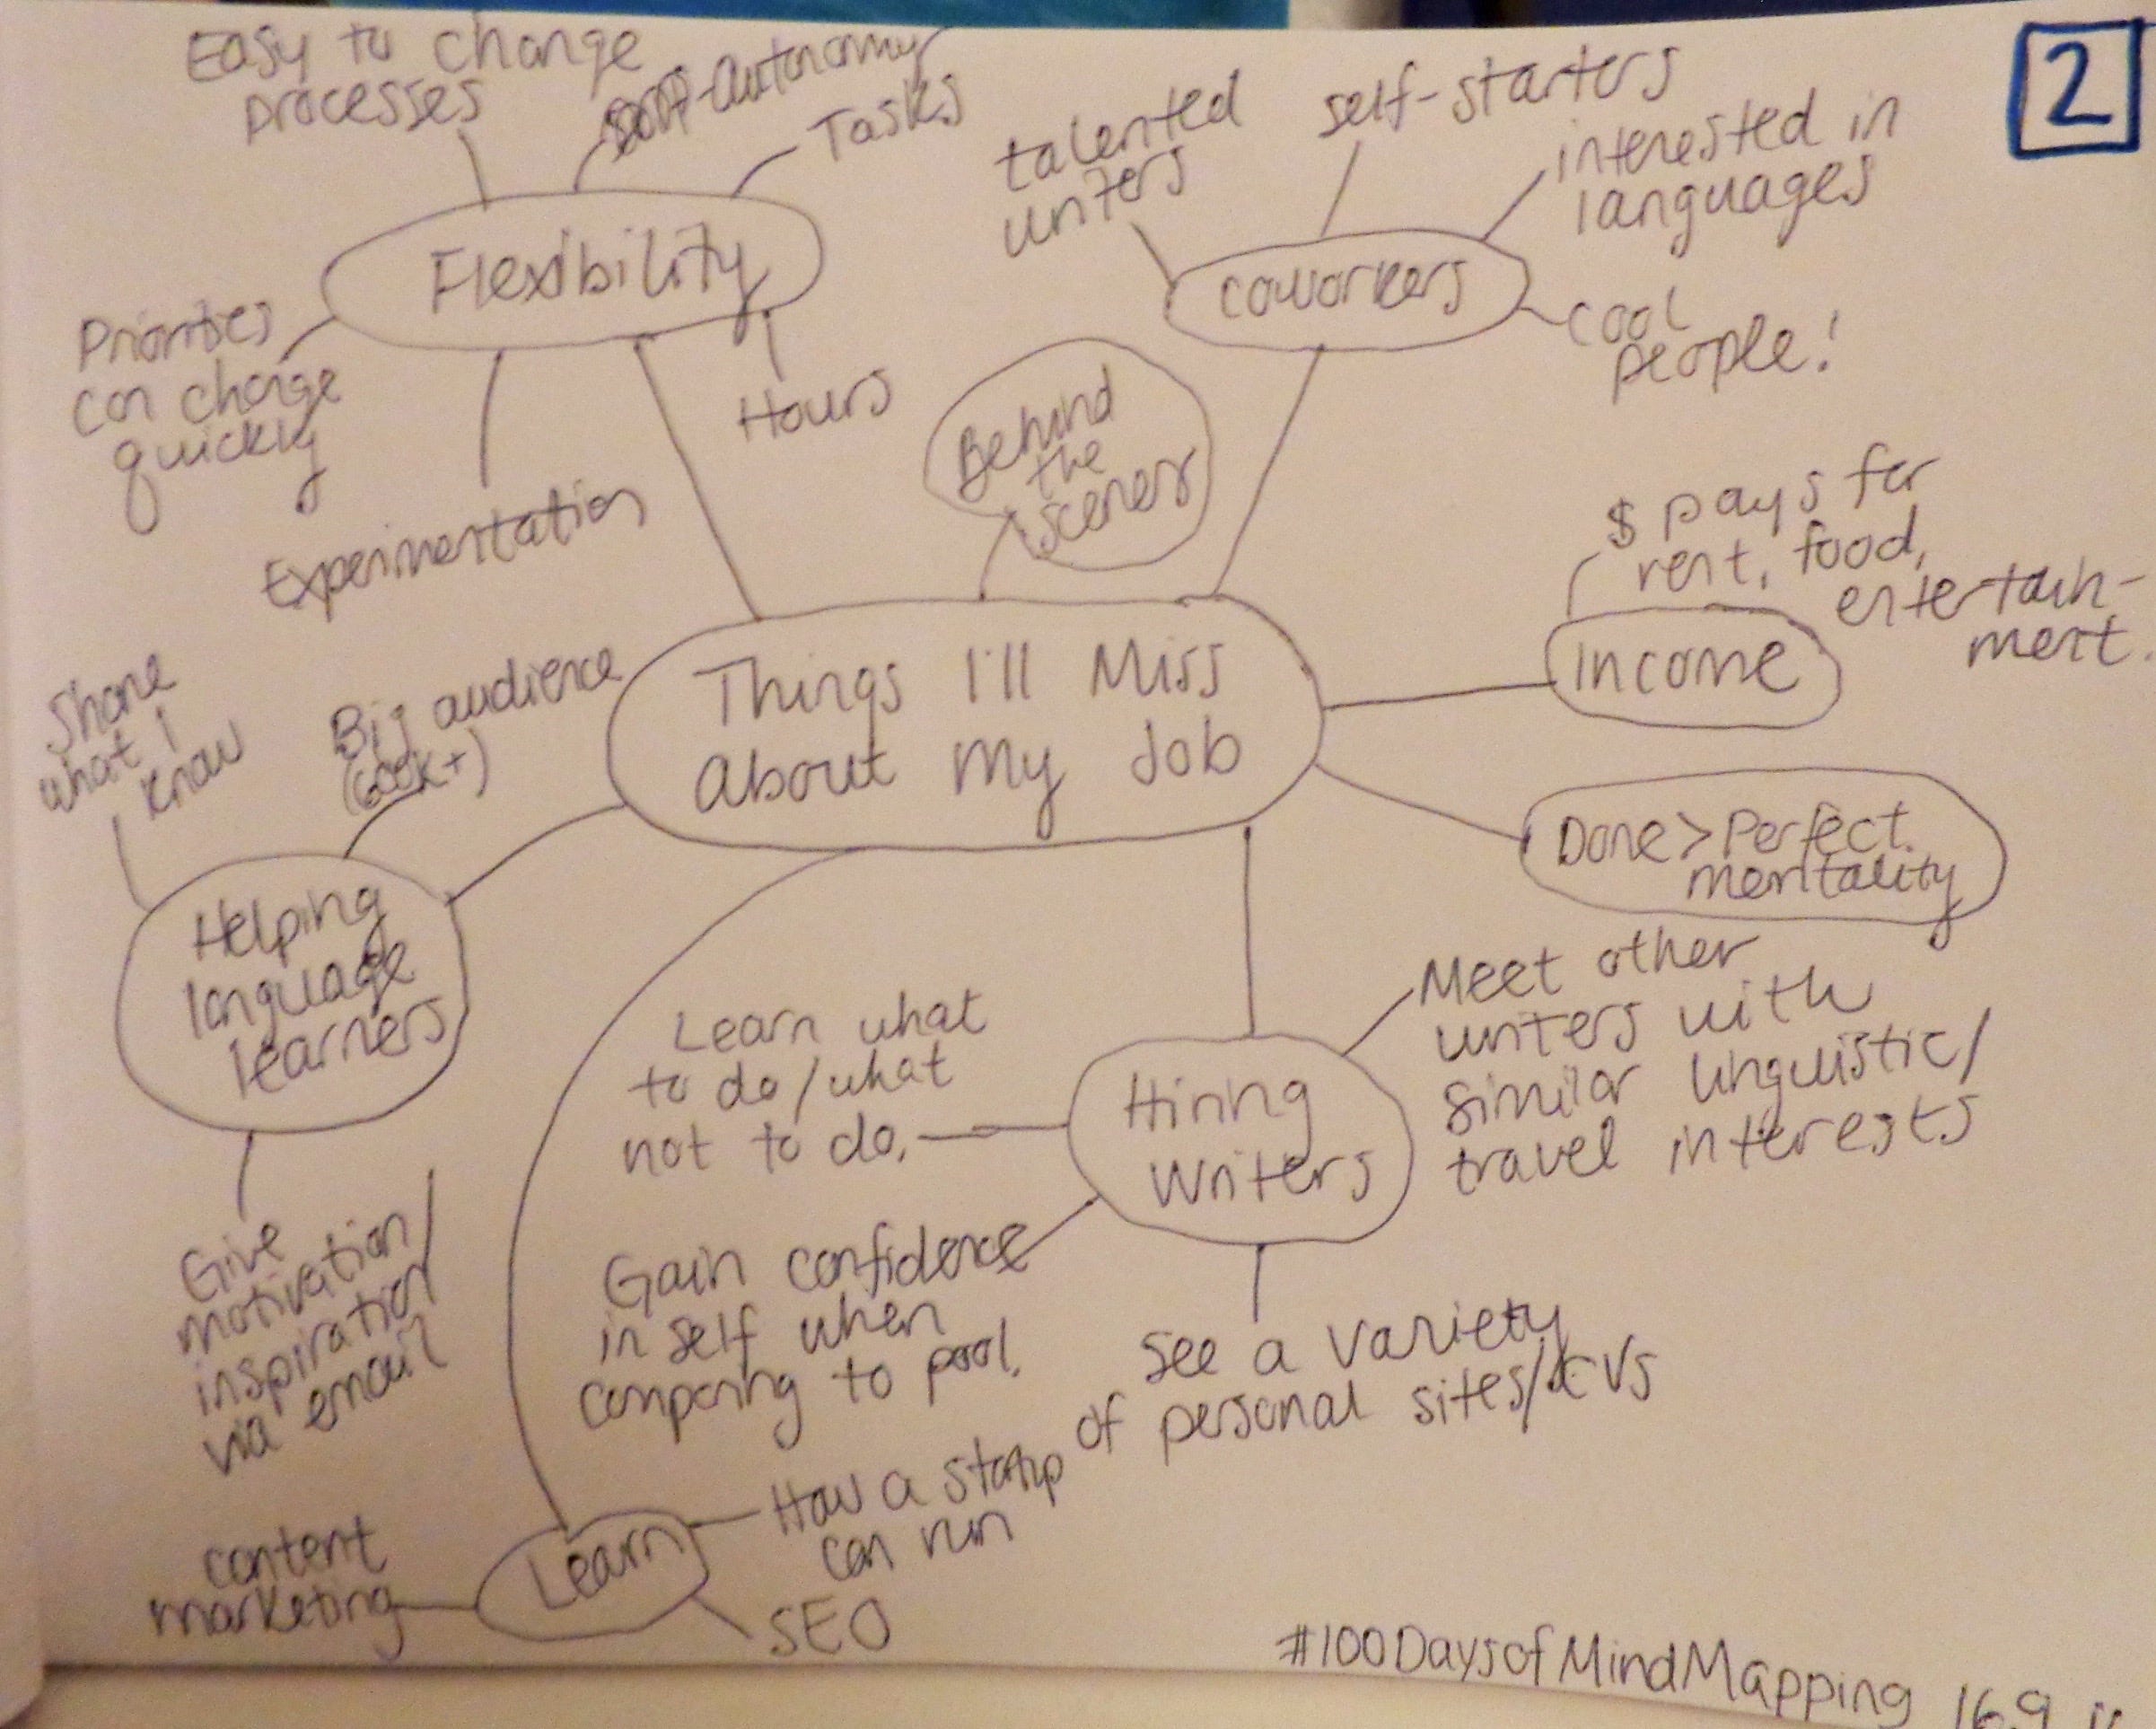 2
Easy to change
processes
autonomy
Tasks
Flexibility
Priorities
can change
quickly
Experimentation
Hours
talented
writers
self-starters
interested in
languages
coworkers
cool
people!
Behind
the
scenes
$ pays for
rent, food,
entertain-
ment.
Income
Things I'll Miss
About My Job
Done > Perfect
mentality
Share
what I
know
Big audience
(600k+)
Helping
language
learners
Give
motivation/
inspiration/
via email
Learn what
to do/what
not to do.
Hiring
Writers
Meet other
writers with
similar linguistic/
travel interests
Gain confidence
in self when
comparing to pool.
See a variety
of personal sites/CVs
Learn
How a startup
can run
SEO
content
marketing
#100DaysofMindMapping 16.9